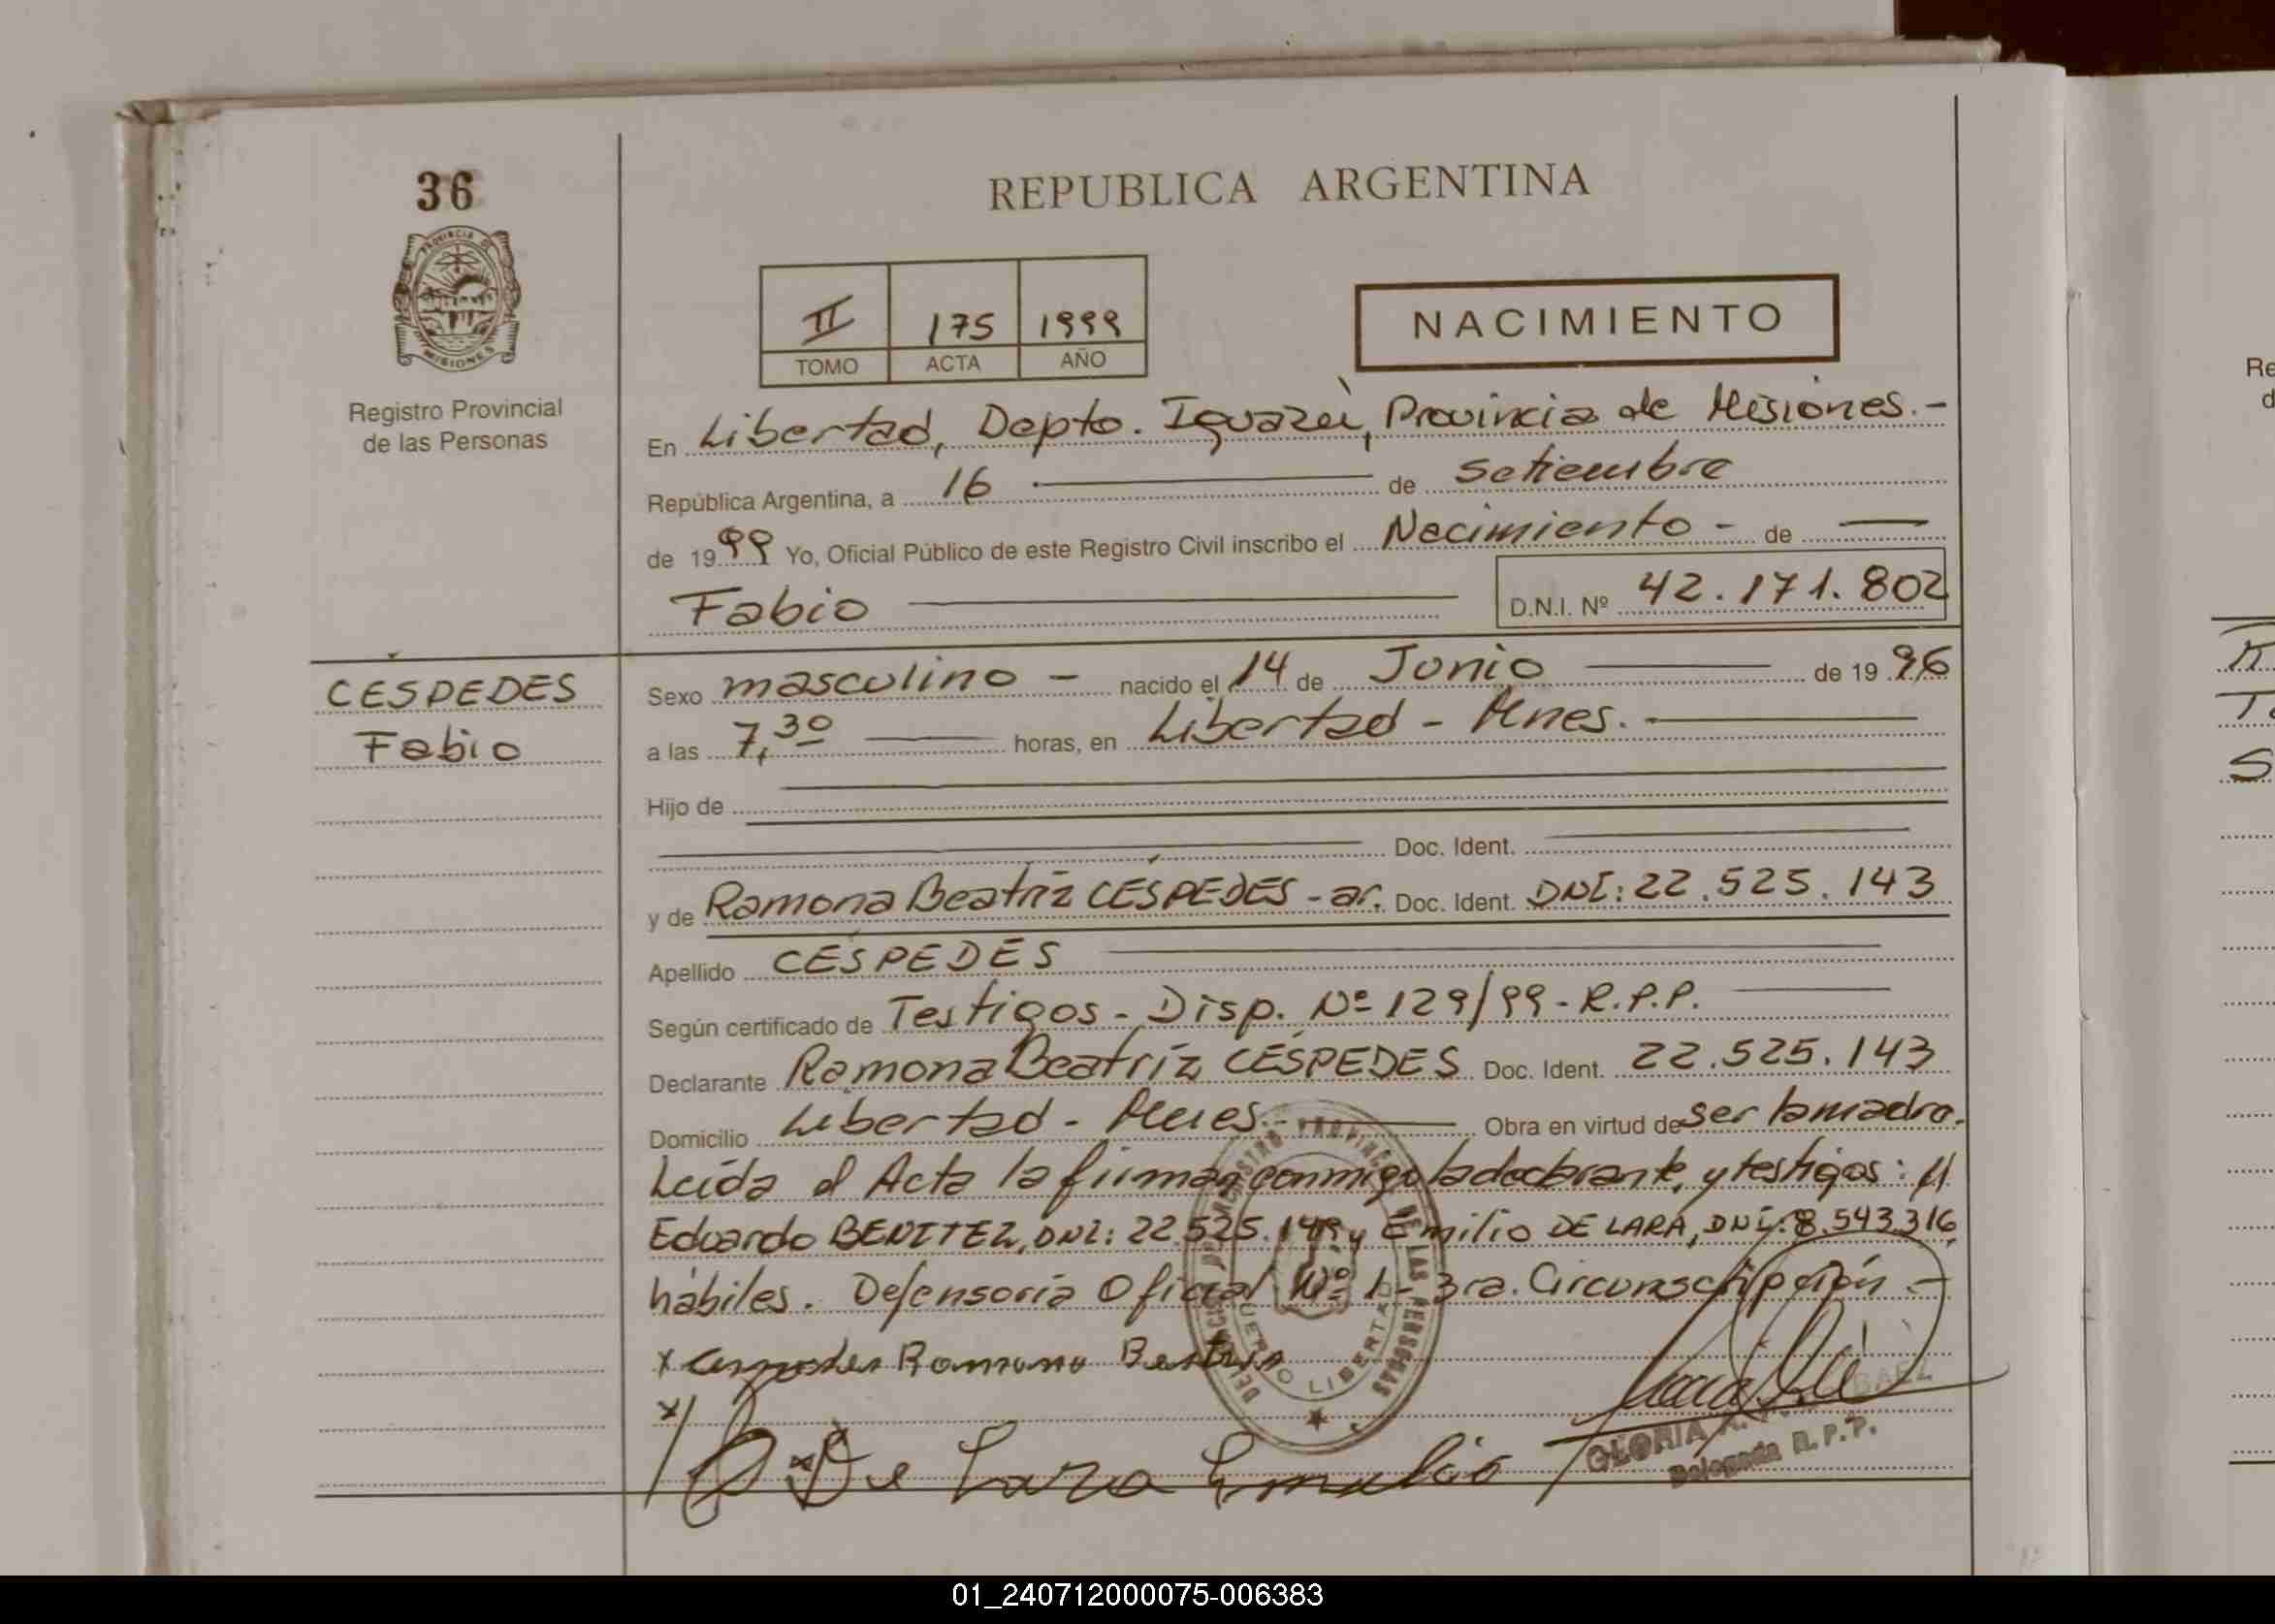 36
REPUBLICA ARGENTINA
PROVINCIA DE
MISIONES
Registro Provincial
de las Personas
II 175 1999
TOMO ACTA AÑO
NACIMIENTO
En Libertad, Depto. Iguazú, Provincia de Misiones.-
República Argentina, a 16 de Setiembre
de 1999 Yo, Oficial Público de este Registro Civil inscribo el Nacimiento - de
Fabio D.N.I. Nº 42.171.802
CESPEDES
Fabio
Sexo masculino - nacido el 14 de Junio de 1996
a las 7,30 horas, en Libertad - Mnes.
Hijo de
Doc. Ident.
y de Ramona Beatríz CÉSPEDES - ar. Doc. Ident. DNI: 22.525.143
Apellido CÉSPEDES
Según certificado de Testigos - Disp. Nº 129/99 - R.P.P.
Declarante Ramona Beatríz CÉSPEDES Doc. Ident. 22.525.143
Domicilio Libertad - Mnes.- Obra en virtud de ser la madre.
Leída el Acta la firman conmigo la declarante, y testigos:
Eduardo BENITEZ, DNI: 22.525.149 y Emilio DE LARA, DNI: 8.543.316,
hábiles. Defensoría Oficial Nº 1 - 3ra. Circunscripción -
x Cespedes Ramona Beatris
x
x De Lara Emilio
REGISTRO PROVINCIAL DE LAS PERSONAS
LIBERTAD
GLORIA BAEZ
Delegada R.P.P.
Re
d
S
01_240712000075-006383